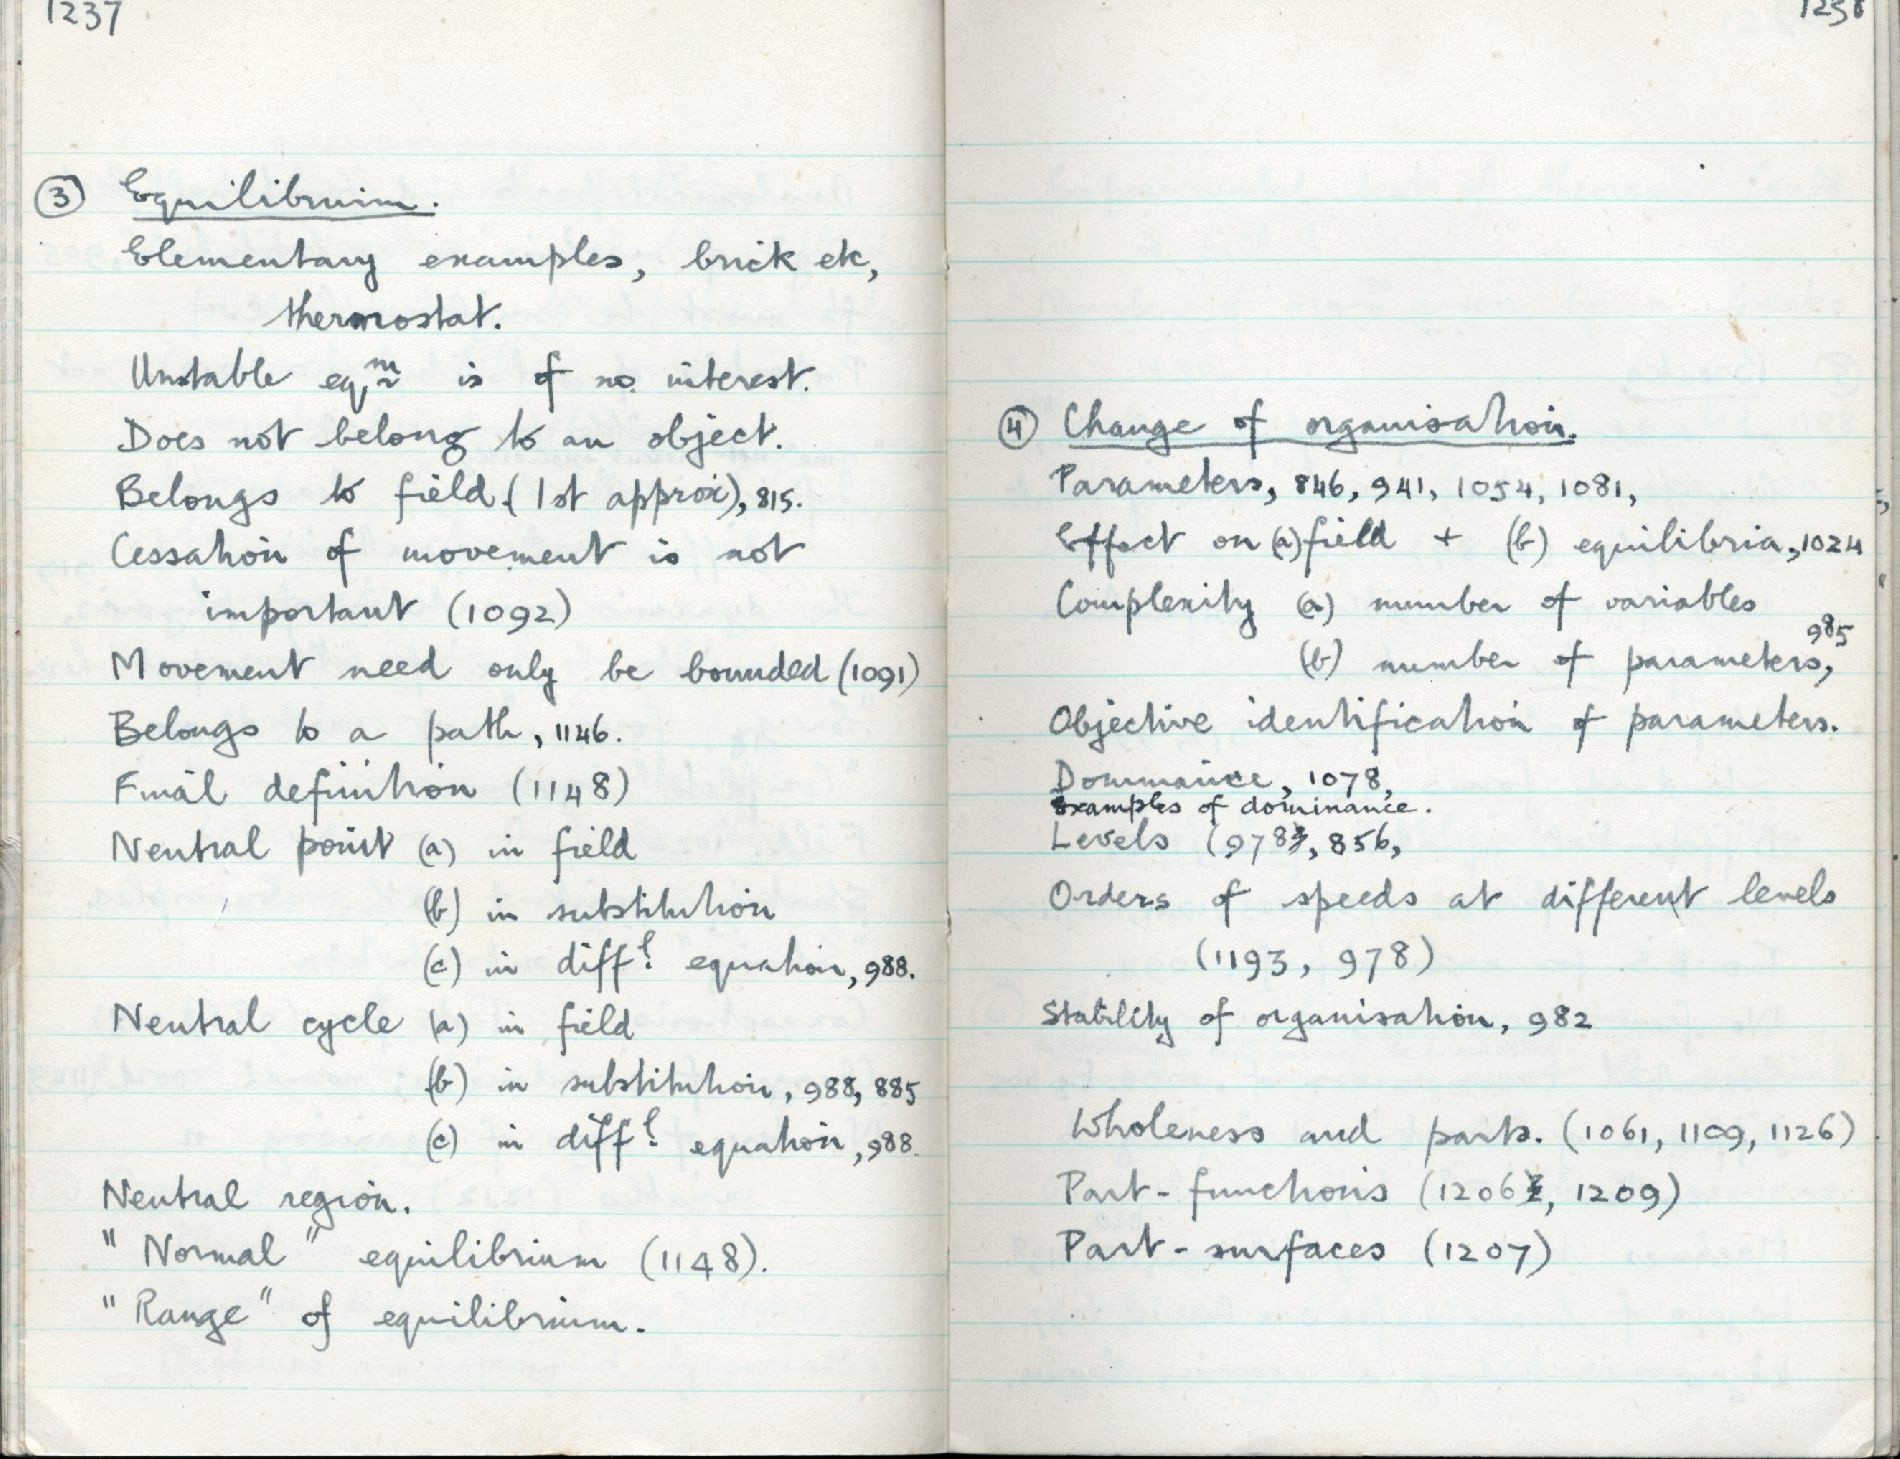 1237
③ Equilibrium.
Elementary examples, brick etc,
thermostat.
Unstable eqm is of no interest.
Does not belong to an object.
Belongs to field (1st approx), 815.
Cessation of movement is not
important (1092)
Movement need only be bounded (1091)
Belongs to a path, 1146.
Final definition (1148)
Neutral point (a) in field
(b) in substitution
(c) in diffl. equation, 988.
Neutral cycle (a) in field
(b) in substitution, 988, 885
(c) in diffl. equation, 988.
Neutral region.
"Normal" equilibrium (1148).
"Range" of equilibrium.
1238
④ Change of organisation.
Parameters, 846, 941, 1054, 1081,
Effect on (a) field + (b) equilibria, 1024
Complexity (a) number of variables
(b) number of parameters, 985
Objective identification of parameters.
Dominance, 1078,
Examples of dominance.
Levels (978), 856,
Orders of speeds at different levels
(1193, 978)
Stability of organisation, 982
Wholeness and parts. (1061, 1109, 1126)
Part-functions (1206, 1209)
Part-surfaces (1207)